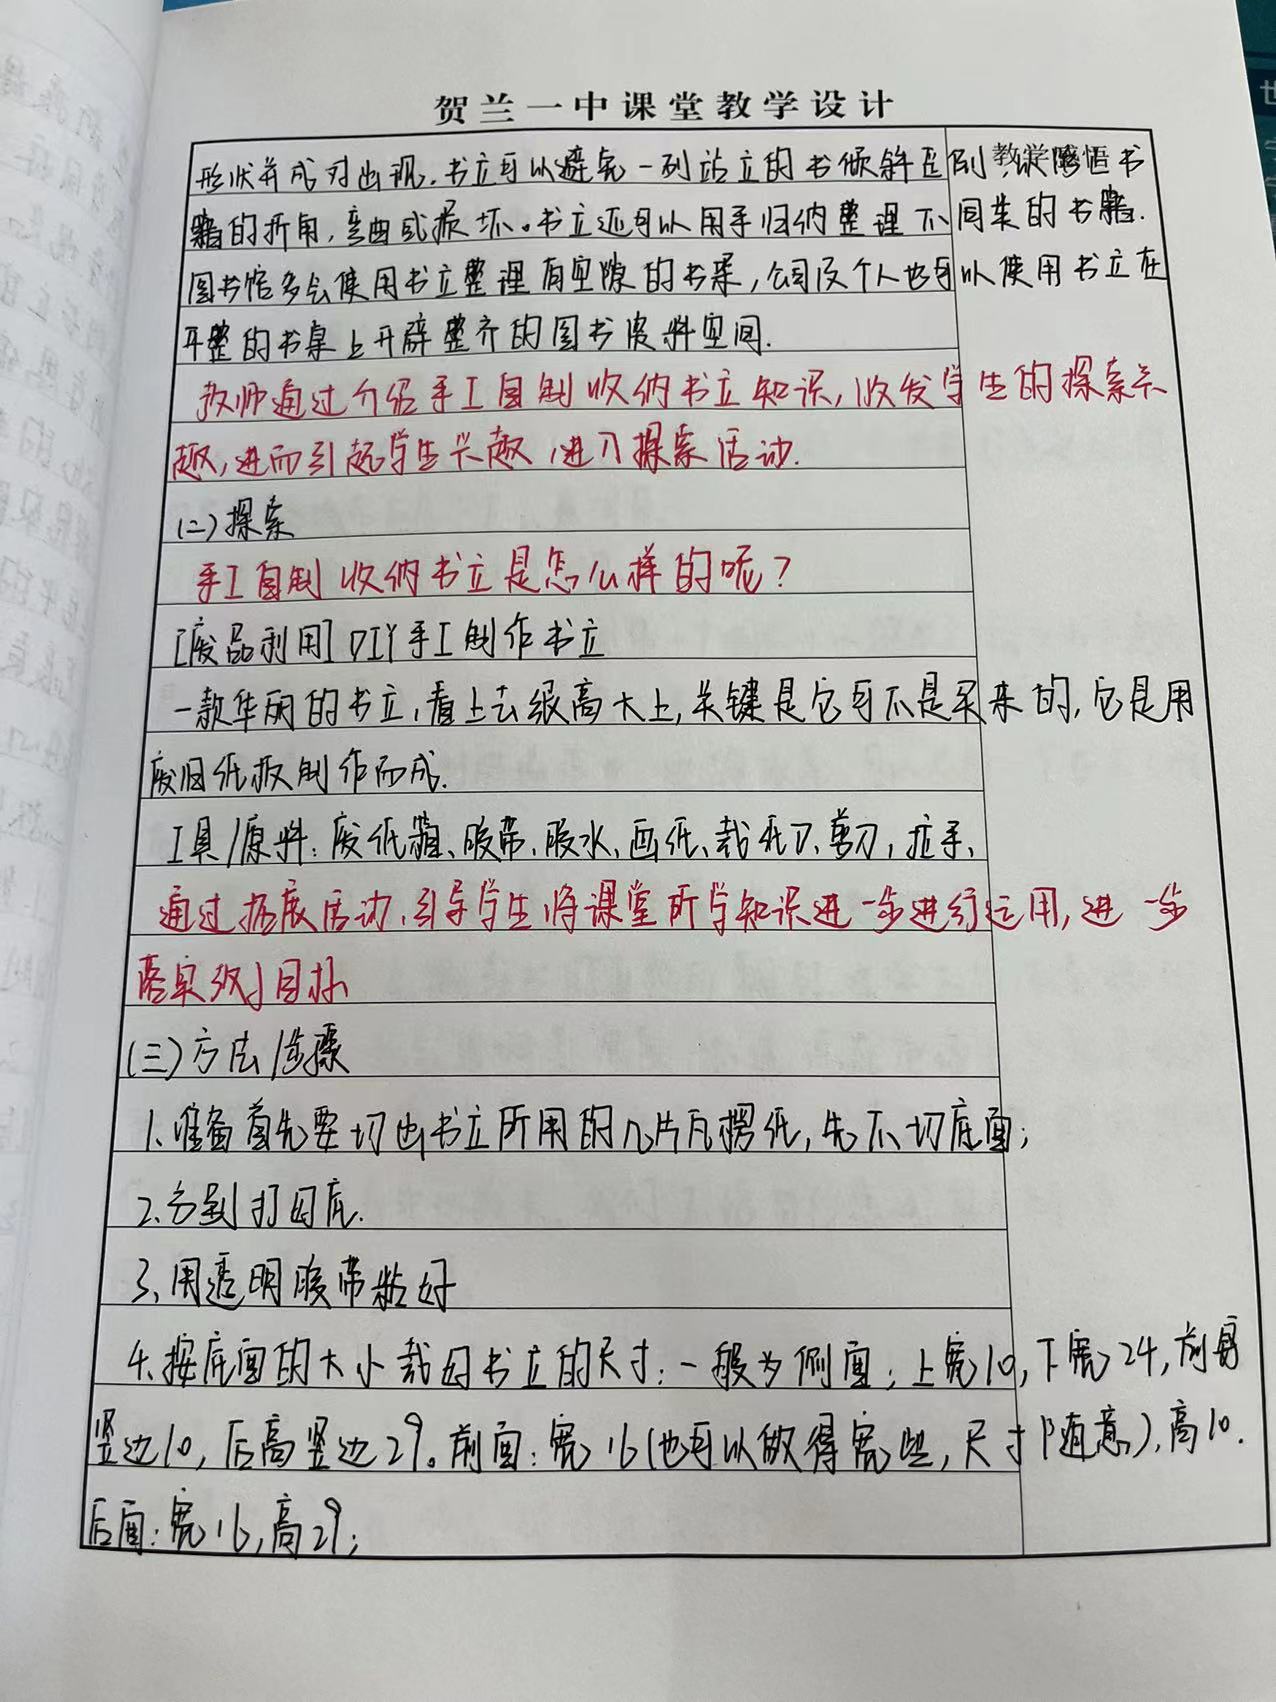 贺兰一中课堂教学设计
教学感悟
形状并成对出现.书立可以避免一列站立的书倾斜歪倒,减隐书
籍的折角,弯曲或损坏。书立还可以用手归纳整理不同类的书籍.
图书馆多会使用书立整理有空隙的书架,公司及个人也可以使用书立在
平整的书桌上开辟整齐的图书资料空间.
教师通过介绍手工自制收纳书立知识,激发学生的探索兴
趣,进而引起学生兴趣,进入探索活动.
(二)探索
手工自制收纳书立是怎么样的呢?
[废品利用]DIY手工制作书立
一款华丽的书立,看上去级高大上,关键是它可不是买来的,它是用
废旧纸板制作而成.
工具/原料:废纸箱、胶带、胶水、画纸、裁纸刀、剪刀,拉手、
通过拓展活动,引导学生将课堂所学知识进一步进行运用,进一步
落实教学目标
(三)方法/步骤
1.准备首先要切出书立所用的几片瓦楞纸,先不切底面;
2.分割打回底.
3、用透明胶带粘好
4.按底面的大小裁出书立的尺寸:一般为侧面;上宽10,下宽24,前身
竖边10,后高竖边29。前面:宽16(也可以做得宽些,尺寸随意),高10.
后面:宽16,高29;